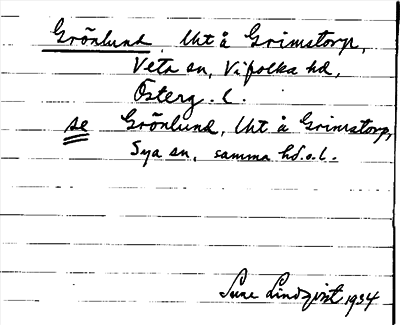 Grönlund, Uht å Grimstorp,
Veta sn, Vifolka hd,
Österg. l.
se Grönlund, Uht å Grimstorp,
Sya sn, samma hd. o. l.
Sune Lindqvist 1934